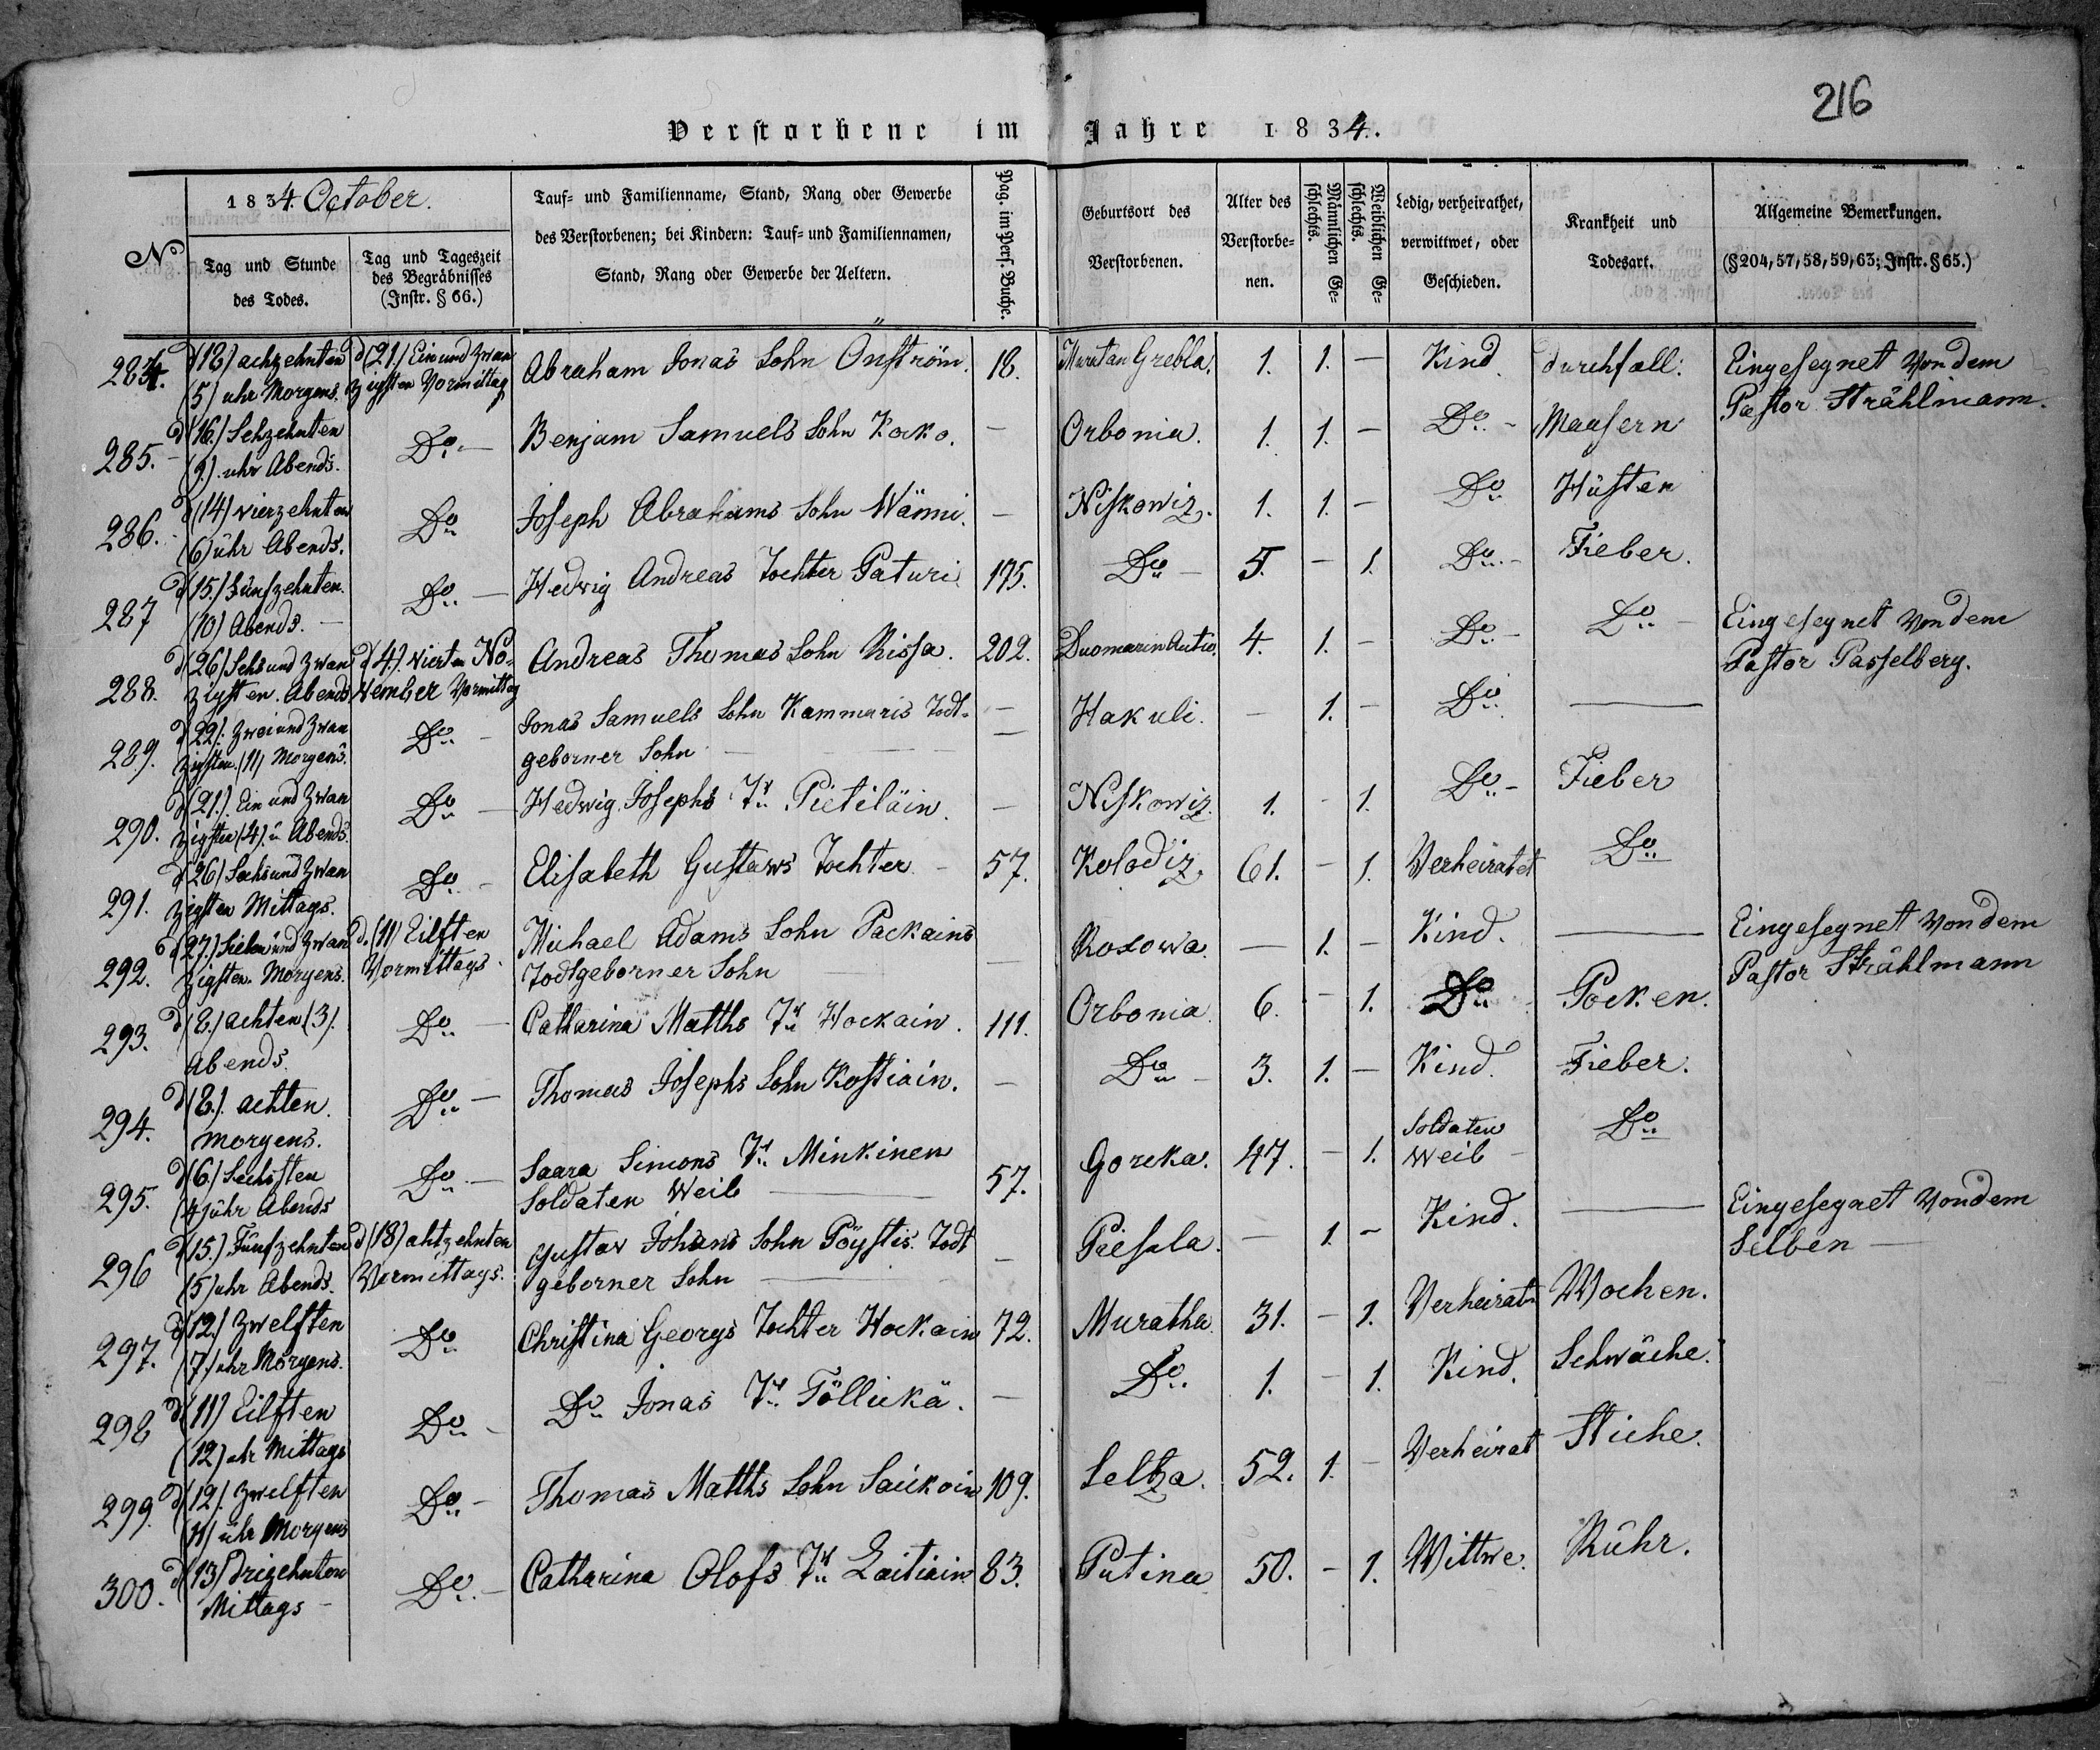 216
Verstorbene im Jahre 1834.
1834. October.
No
Tag und Stunde des Todes.
Tag und Tageszeit des Begräbnisses (Instr. § 66.)
Tauf- und Familienname, Stand, Rang oder Gewerbe
des Verstorbenen; bei Kindern: Tauf- und Familiennamen,
Stand, Rang oder Gewerbe der Aeltern.
Pag. im Pers. Buche.
Geburtsort des Verstorbenen.
Alter des Verstorbe-nen.
Männlichen Ge-schlechts.
Weiblichen Ge-schlechts.
Ledig, verheirathet, verwittwet, oder Geschieden.
Krankheit und Todesart.
Allgemeine Bemerkungen.
(§ 204, 57, 58, 59, 63; Instr. § 65.)
284. d (18) achzehnten (5) uhr Morgens. d (21.) Ein und Zwanzigsten Vormittag Abraham Jonas Sohn Önström. 18. Grebla. 1. 1. — Kind durchfall: Eingesegnet Von dem Pastor Strählmann.
285. d (16.) Sehzehnten (9.) uhr Abends. Do — Benjam Samuels Sohn Kocko. — Orbonia. 1. 1. — Do — Maasern
286. d (14) vierzehnten (6) uhr Abends. Do Joseph Abrahams Sohn Wänni. — Niskowiz. 1. 1. — Do Hüsten
287 d (15.) Fünfzehnten. (10) Abends. — Do — Hedwig Andreas Tochter Paturi. 175. Do — 5. — 1. Do — Fieber.
288. d (26) Sehs und Zwanzigsten. Abends d 4). vierten November Vormittag Andreas Thomas Sohn Rissa. 202. 4. 1. — Do — Do — Eingesegnet Von dem Pastor Passelberg.
289. d 22). Zwei und Zwanzigsten. (11) Morgens. Do — Jonas Samuels Sohn Kammaris Todtgeborner Sohn — Hakuli. — 1. — Do —
290. d (21.) Ein und Zwanzigsten (4) u Abends. Do — Hedwig Josephs Tr Pietiläin. — Niskowiz. 1. — 1. Do — Fieber
291. d 26) Sechs und Zwanzigsten Mittags. Do — Elisabeth Gustaws Tochter — 57. Kolodiz. 61. — 1. Verheiratet Do
292. d (27.) Sieben und Zwanzigsten. Morgens. d. (11) Eilften Vormittags. Michael Adams Sohn Packains Todtgeborner Sohn — Rosowa. — 1. — Kind. — Eingesegnet Von dem Pastor Strählmann
293. d (8.) achten (3). Abends. Do — Catharina Matths Tr Hockain. 111. Orbonia. 6. — 1. Do Pocken.
294. d (8.). achten. morgens. Do — Thomas Josephs Sohn Kostiain. — Do — 3. 1. — Kind. Fieber.
295. d (6.) Sechsten (4) uhr Abends Do — Saara Simons Tr Minkinen Soldaten Weib — 57. Goreka. 47. — 1. Soldaten Weib — Do
296 d (15.) Fünfzehnten (5) uhr Abends. d (18) ahtzehnten Vormittags. Gustav Johans Sohn Pöystis. Todtgeborner Sohn — Piesala. — 1. — Kind. — Eingesegnet Von dem Selben —
297. d (12.) Zwelften (7.) uhr Morgens. Do Christina Georgs Tochter Hockain 72. Muratha. 31. — 1. Verheirat Wochen.
298 d (11) Eilften (12) uhr Mittags Do — Do Jonas Tr Töllickä. — Do 1. — 1. Kind. Schwäche.
299. d (12). Zwelften (11) uhr Morgens Do — Thomas Matths Sohn Saickoin 109. Seltza. 52. 1. — Verheirat Stiche.
300. d (13) Drizehnten Mittags — Do — Catharina Olofs Tr Laitiain 83. Putina 50. — 1. Wittwe. Ruhr.